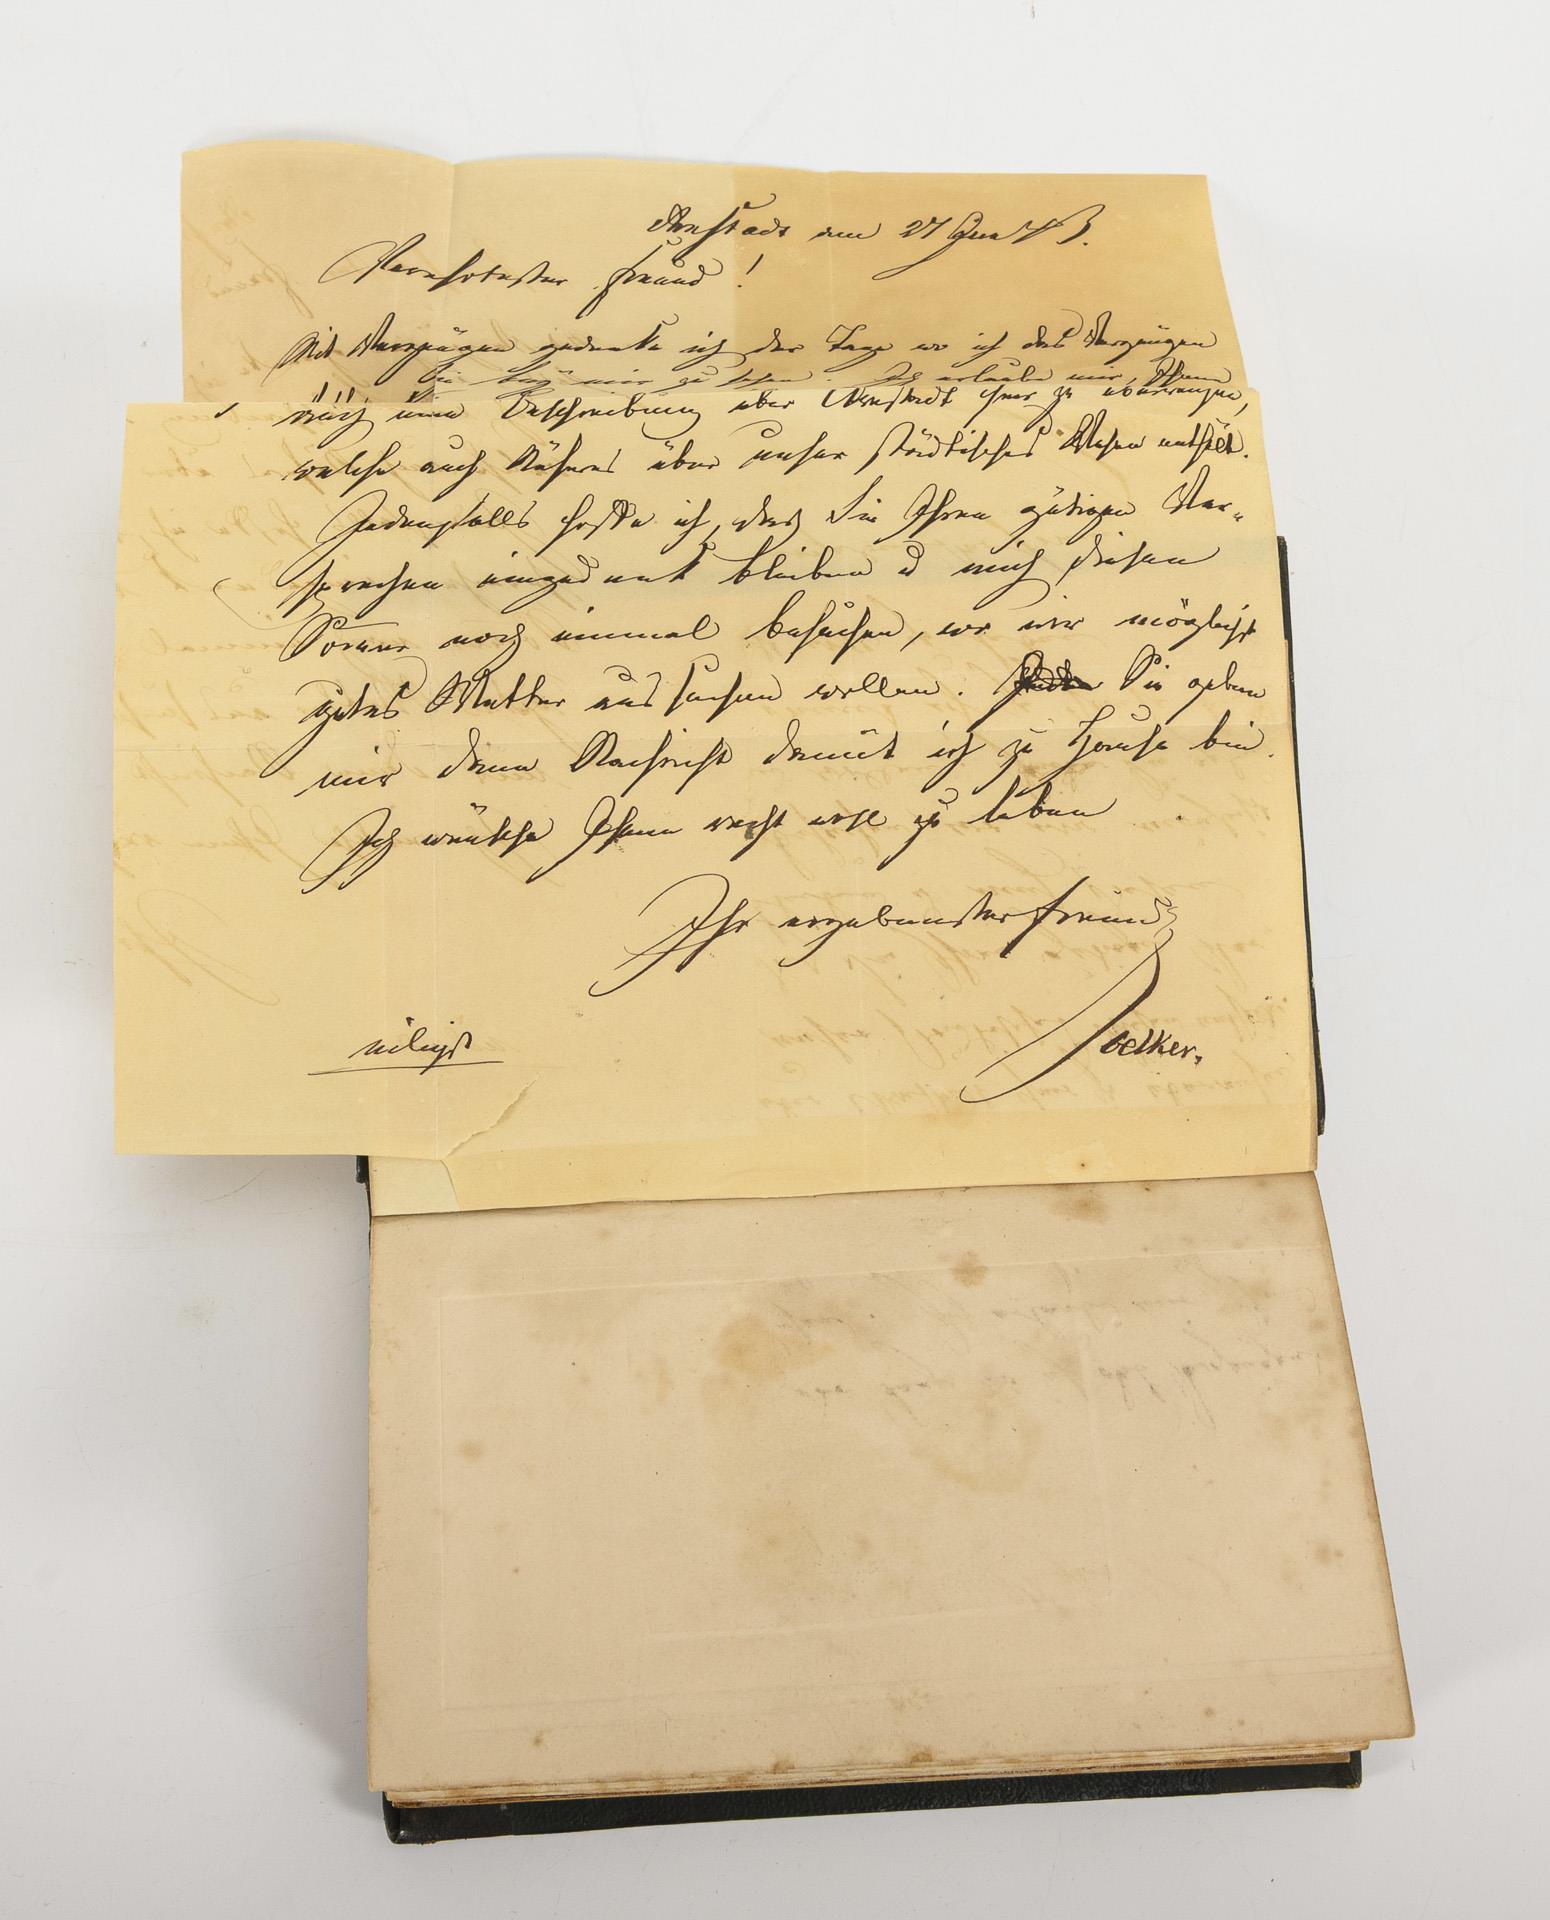 Arnstadt den 27 Jun
Verehrtester Freund!
Mit Vergnügen gedenke ich der Tage wo ich das Vergnügen
Sie bey mir zu sehen. Ich erlaube mir, Ihnen
eine Beschreibung über Arnstadt hier zu überreichen,
welche auch Näheres über unser städtisches Wesen enthält.
Jedenfalls hoffe ich, daß Sie Ihren gütigen Ver-
sprechen eingedenk bleiben u mich diesen
Somer noch einmal besuchen, wo wir möglichst
gutes Wetter aussuchen wollen. Sie geben
mir dann Nachricht damit ich zu Hause bin.
Ich wünsche Ihnen recht wohl zu leben
Ihr ergebenster Freund
eiligst